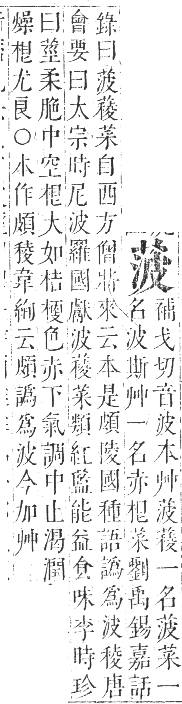 菠
補戈切音波本艸菠薐一名菠菜一
名波斯艸一名赤根菜劉禹錫嘉話
錄曰菠薐菜自西方僧將來云本是頗陵國種語譌爲波稜唐
會要曰太宗時尼波羅國獻波薐菜類紅藍能益食味李時珍
曰莖柔脆中空根大如桔梗色赤下氣調中止渴潤
燥根尤良○本作頗稜韋絢云頗譌爲波今加艸